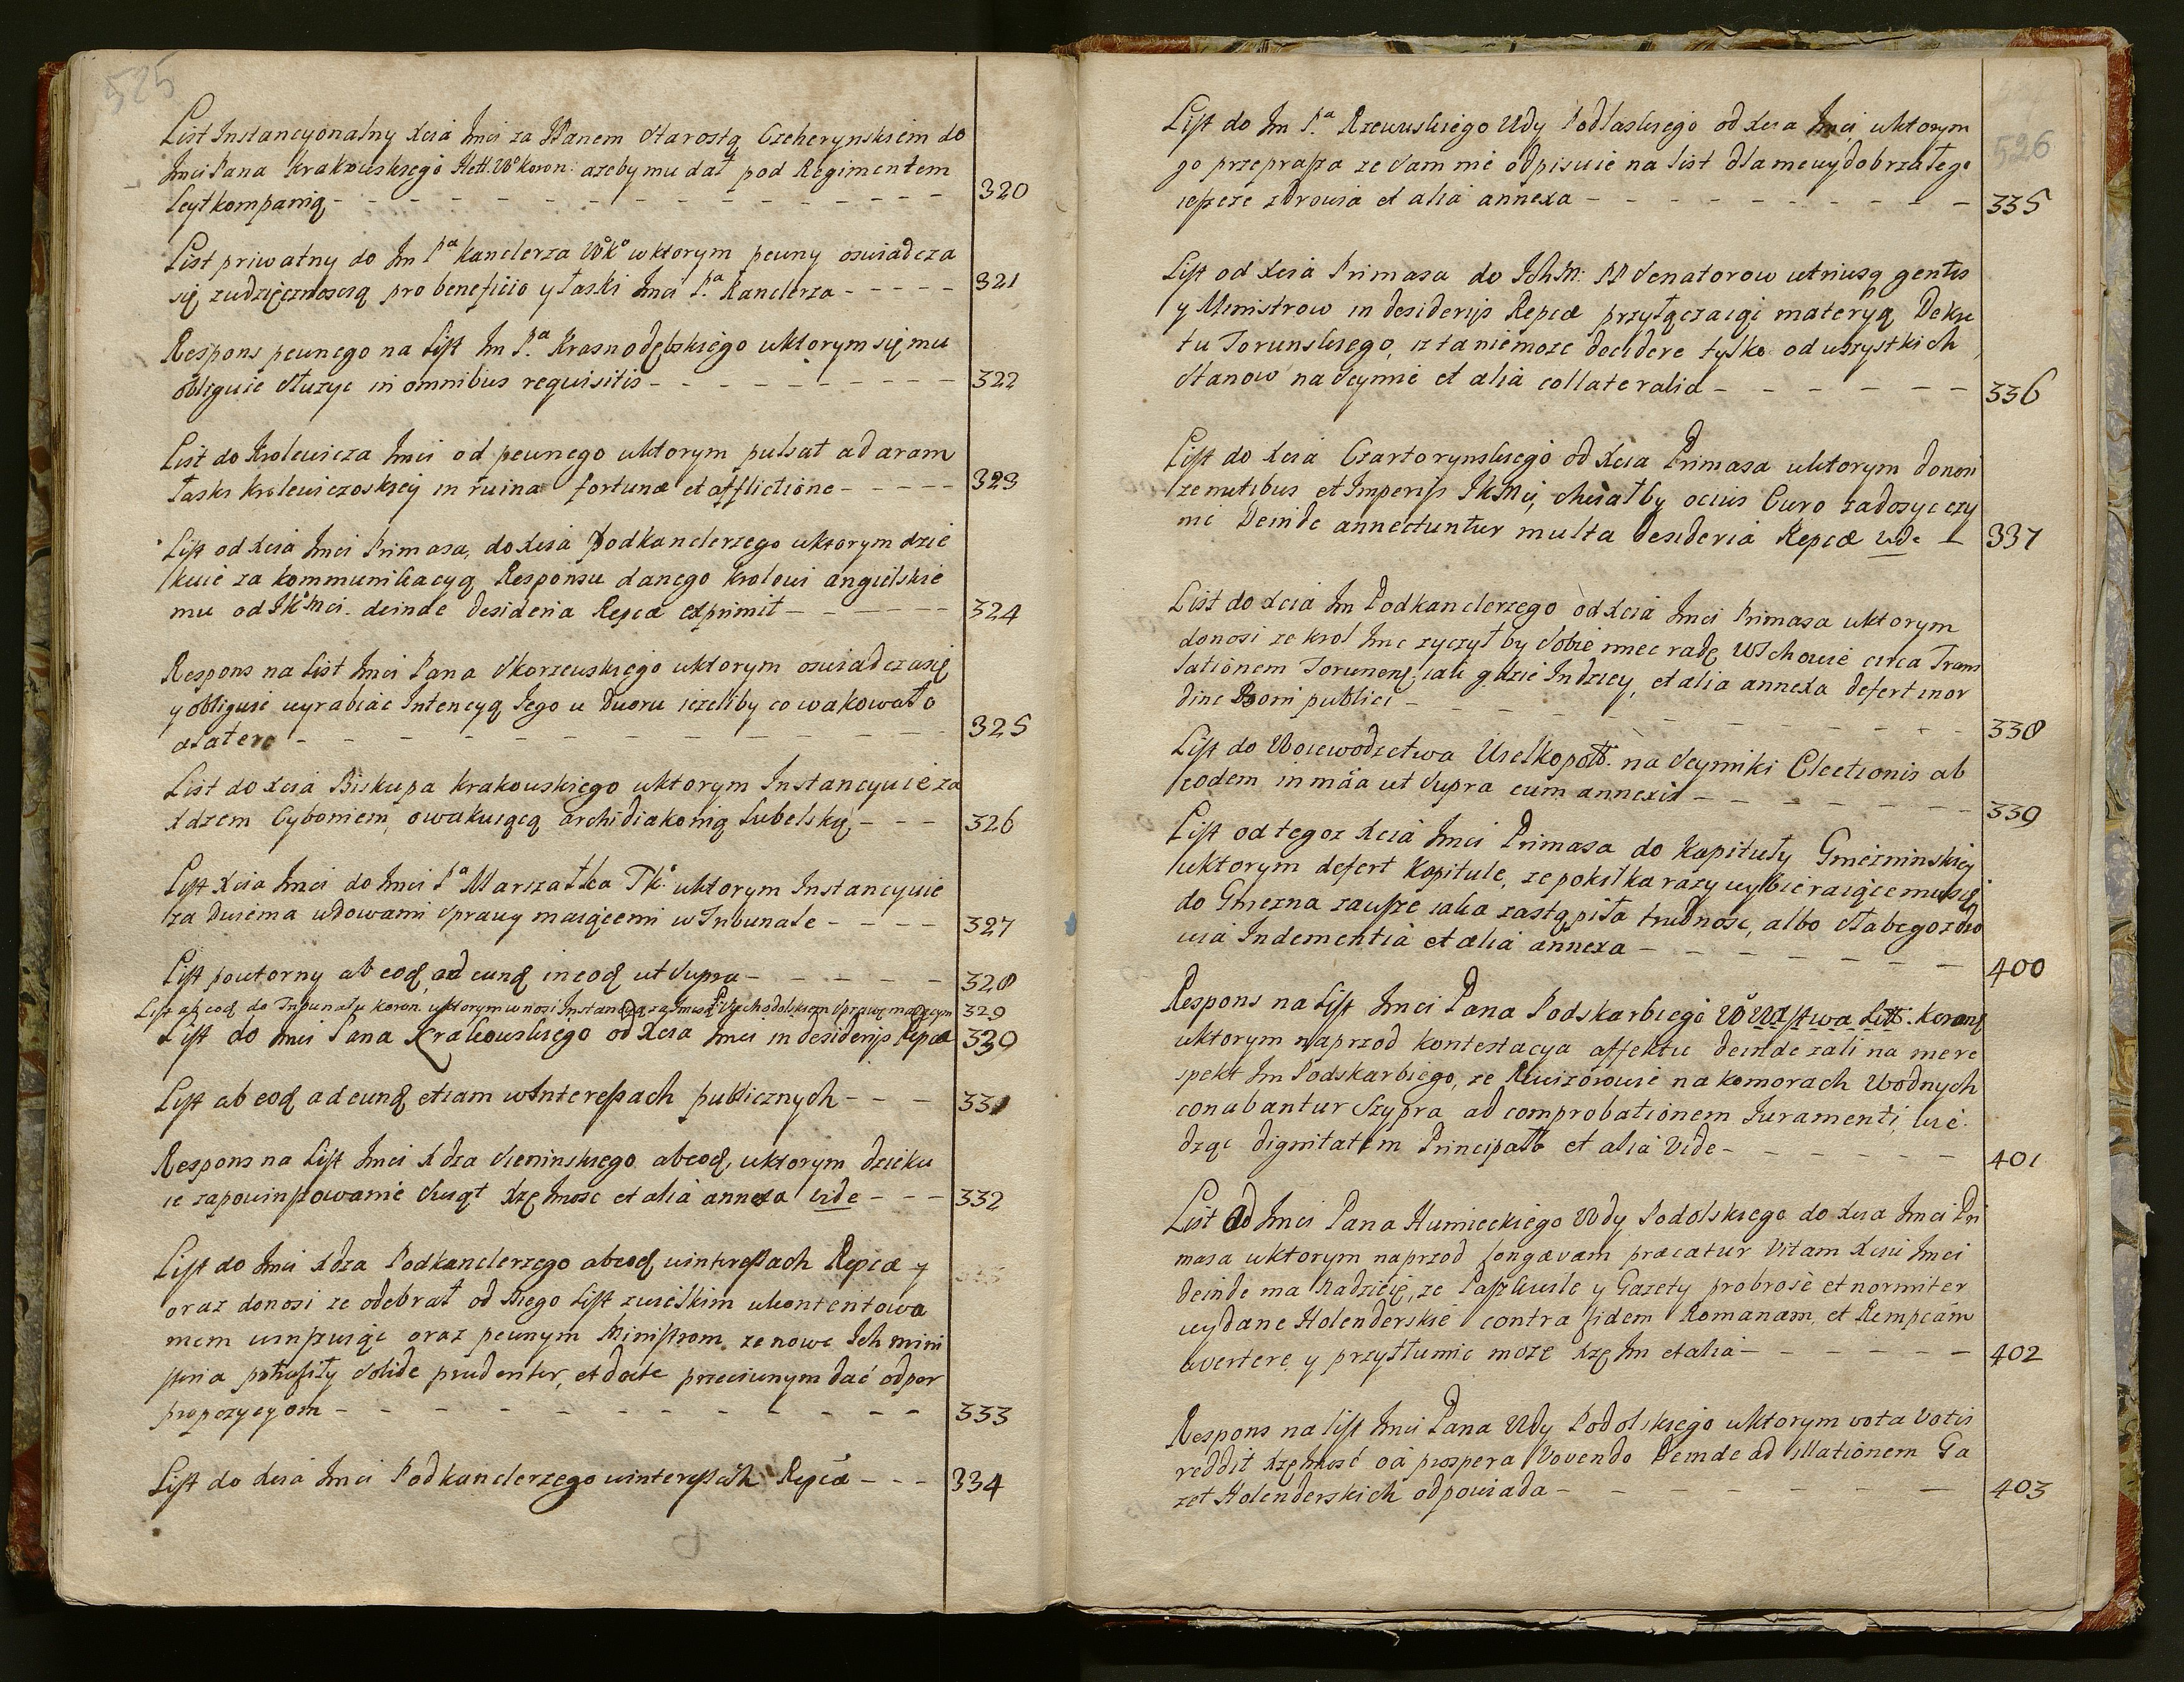 525
List Instancyonalny Xcia Imci za JPanem Starostą Czeherynskiem do
Imci Pana Krakowskiego Hett: Wo Koron: azeby mu dał pod Regimentem
Leytkompanią - - - 320
List priwatny do Im Pa Kanclerza WoKo w ktorym pewny oswiadcza
się z wdzięcznoscią pro beneficio y łaski Imci Pa Kanclerza - - - 321
Respons pewnego na List Im Pa Krasnodębskiego w ktorym się mu
obliguie słuzyc in omnibus requisitis - - - 322
List do Krolewicza Imci od pewnego w ktorym pulsat ad aram
łaski Krolewiczoskiey in ruina fortunæ et afflictione - - - 323
List od Xcia Imci Primasa, do Xcia Podkanclerzego w ktorym dzie
kuie za kommunikacyą Responsu danego Krolowi angielskie
mu od JKo Mci. deinde desideria Reipcæ exprimit - - - 324
Respons na List Imci Pana Skorzewskiego w ktorym oswiadcza się
y obliguie wyrabiac Intencyą Jego u Dworu iezeliby co wakowało
a latere - - - 325
List do Xcia Biskupa Krakowskiego w ktorym Instancyuie za
Xdzem Cyboniem, o wakuiącą archidiakonią Lubelską - - - 326
List Xcia Imci do Imci Pa Marszałka TKo w ktorym Instancyuie
za dwiema wdowami Sprawy maiącemi w Tribunale - - - 327
List powtorny ab eod, ad eund in eod ut Supra - - - 328
List ab eod do Trybunału Koron. w ktorym wnosi Instancyą za Imcią P. Wschodolskiem Sprawę maiącym 329
List do Imci Pana Krakowskiego od Xcia Imci in desiderijs Reipcæ 330
List ab eod ad eund etiam w Interessach publicznych - - - 331
Respons na List Imci Xdza Sieninskiego ab eod, w ktorym dzieku
ie za powinszowanie Swiąt Xzę Imosc et alia annexa vide - - - 332
List do Imci Xdza Podkanclerzego ab eod w interessach Reipcæ y
oraz donosi ze odebrał od Niego List z wielkim ukontentowa
niem winszuiąc oraz pewnym Ministrom, ze nowe Ich mini
steria potrafiły Solide prudenter, et docte przeciwnym dać odpor
propozycyom - - - 333
List do Xcia Imci Podkanclerzego w interessach Reipcæ - - - 334
526
List do Im Pa Rzewuskiego Wdy Podlaskiego od Xcia Imci w ktorym
go przeprasza ze Sam nie odpisuie na list dla niewydobrzałego
ieszcze zdrowia et alia annexa - - - 335
List od Xcia Primasa do Ichm: PP Senatorow utriusq gentis
y Ministrow in desiderijs Reipcæ przyłączaiąc materyą Dekre
tu Torunskiego, iz ta nie moze decidere tylko od wszystkich
Stanow na Seymie et alia collateralia - - - 336
List do Xcia Czartorynskiego od Xcia Primasa w ktorym donosi
ze nutibus et Imperijs JKMci, chciałby ocius Curo zadosyc czy
nic Deinde annectuntur multa desideria Reipcæ vide - 337
List do Xcia Im Podkanclerzego od Xcia Imci Primasa w ktorym
donosi ze krol Imc zyczył by Sobie miec radę w Wschowie circa Trans
lationem Torunens; iak gdzie Indziey, et alia annexa defert in or
dine Boni publici - - - 338
List do Woiewodzctwa Wielkopols. na Seymiki Electionis ab
eodem in mãa ut Supra cum annexis - - - 339
List od tegoz Xcia Imci Primasa do Kapituły Gnieznienskiey
w ktorym defert Kapitule, ze po kilka razy wybieraiącemu się
do Gniezna zawsze iaka zastąpiła trudnosc, albo słabego zdro
wia Indementia et alia annexa - - - 400
Respons na List Imci Pana Podskarbiego Wo Wa stwa Litt. Korong
w ktorym naprzod kontestacya affektu deinde zali na mere
spekt Im Podskarbiego, ze Rewizorowie na komorach wodnych
conabantur Szypra ad comprobationem Iuramenti, wie
dząc dignitatem Principało et alia vide - - - 401
List od Imci Pana Humieckiego Wdy Podolskiego do Xcia Imci Pri
masa w ktorym naprzod longævam præcatur vitam Xciu Imci
deinde ma Nadzieię, ze Paszkwile y Gazety probrose et normiter
wydane Holenderskie contra fidem Romanam, et Rempcam
avertere, y przytłumic moze Xzę Im et alia - - - 402
Respons na list Imci Pana Wdy Podolskiego w ktorym vota votis
reddit Xzę Imosc oa prospera Vovendo Deinde ad illationem Ga
zet Holenderskich odpowiada - - - 403